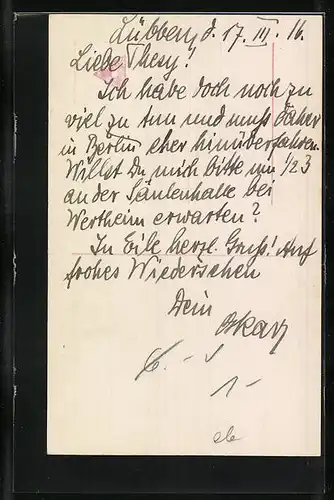 Lübben, d. 17. III. 16.
Liebe Thesy!
Ich habe doch noch zu
viel zu tun und muß daher
in Berlin eher hinüberfahren.
Willst Du mich bitte um 1/2 3
an der Säulenhalle bei
Wertheim erwarten?
In Eile herzl. Gruß! Auf
frohes Wiedersehen
Dein
Oskar
1-